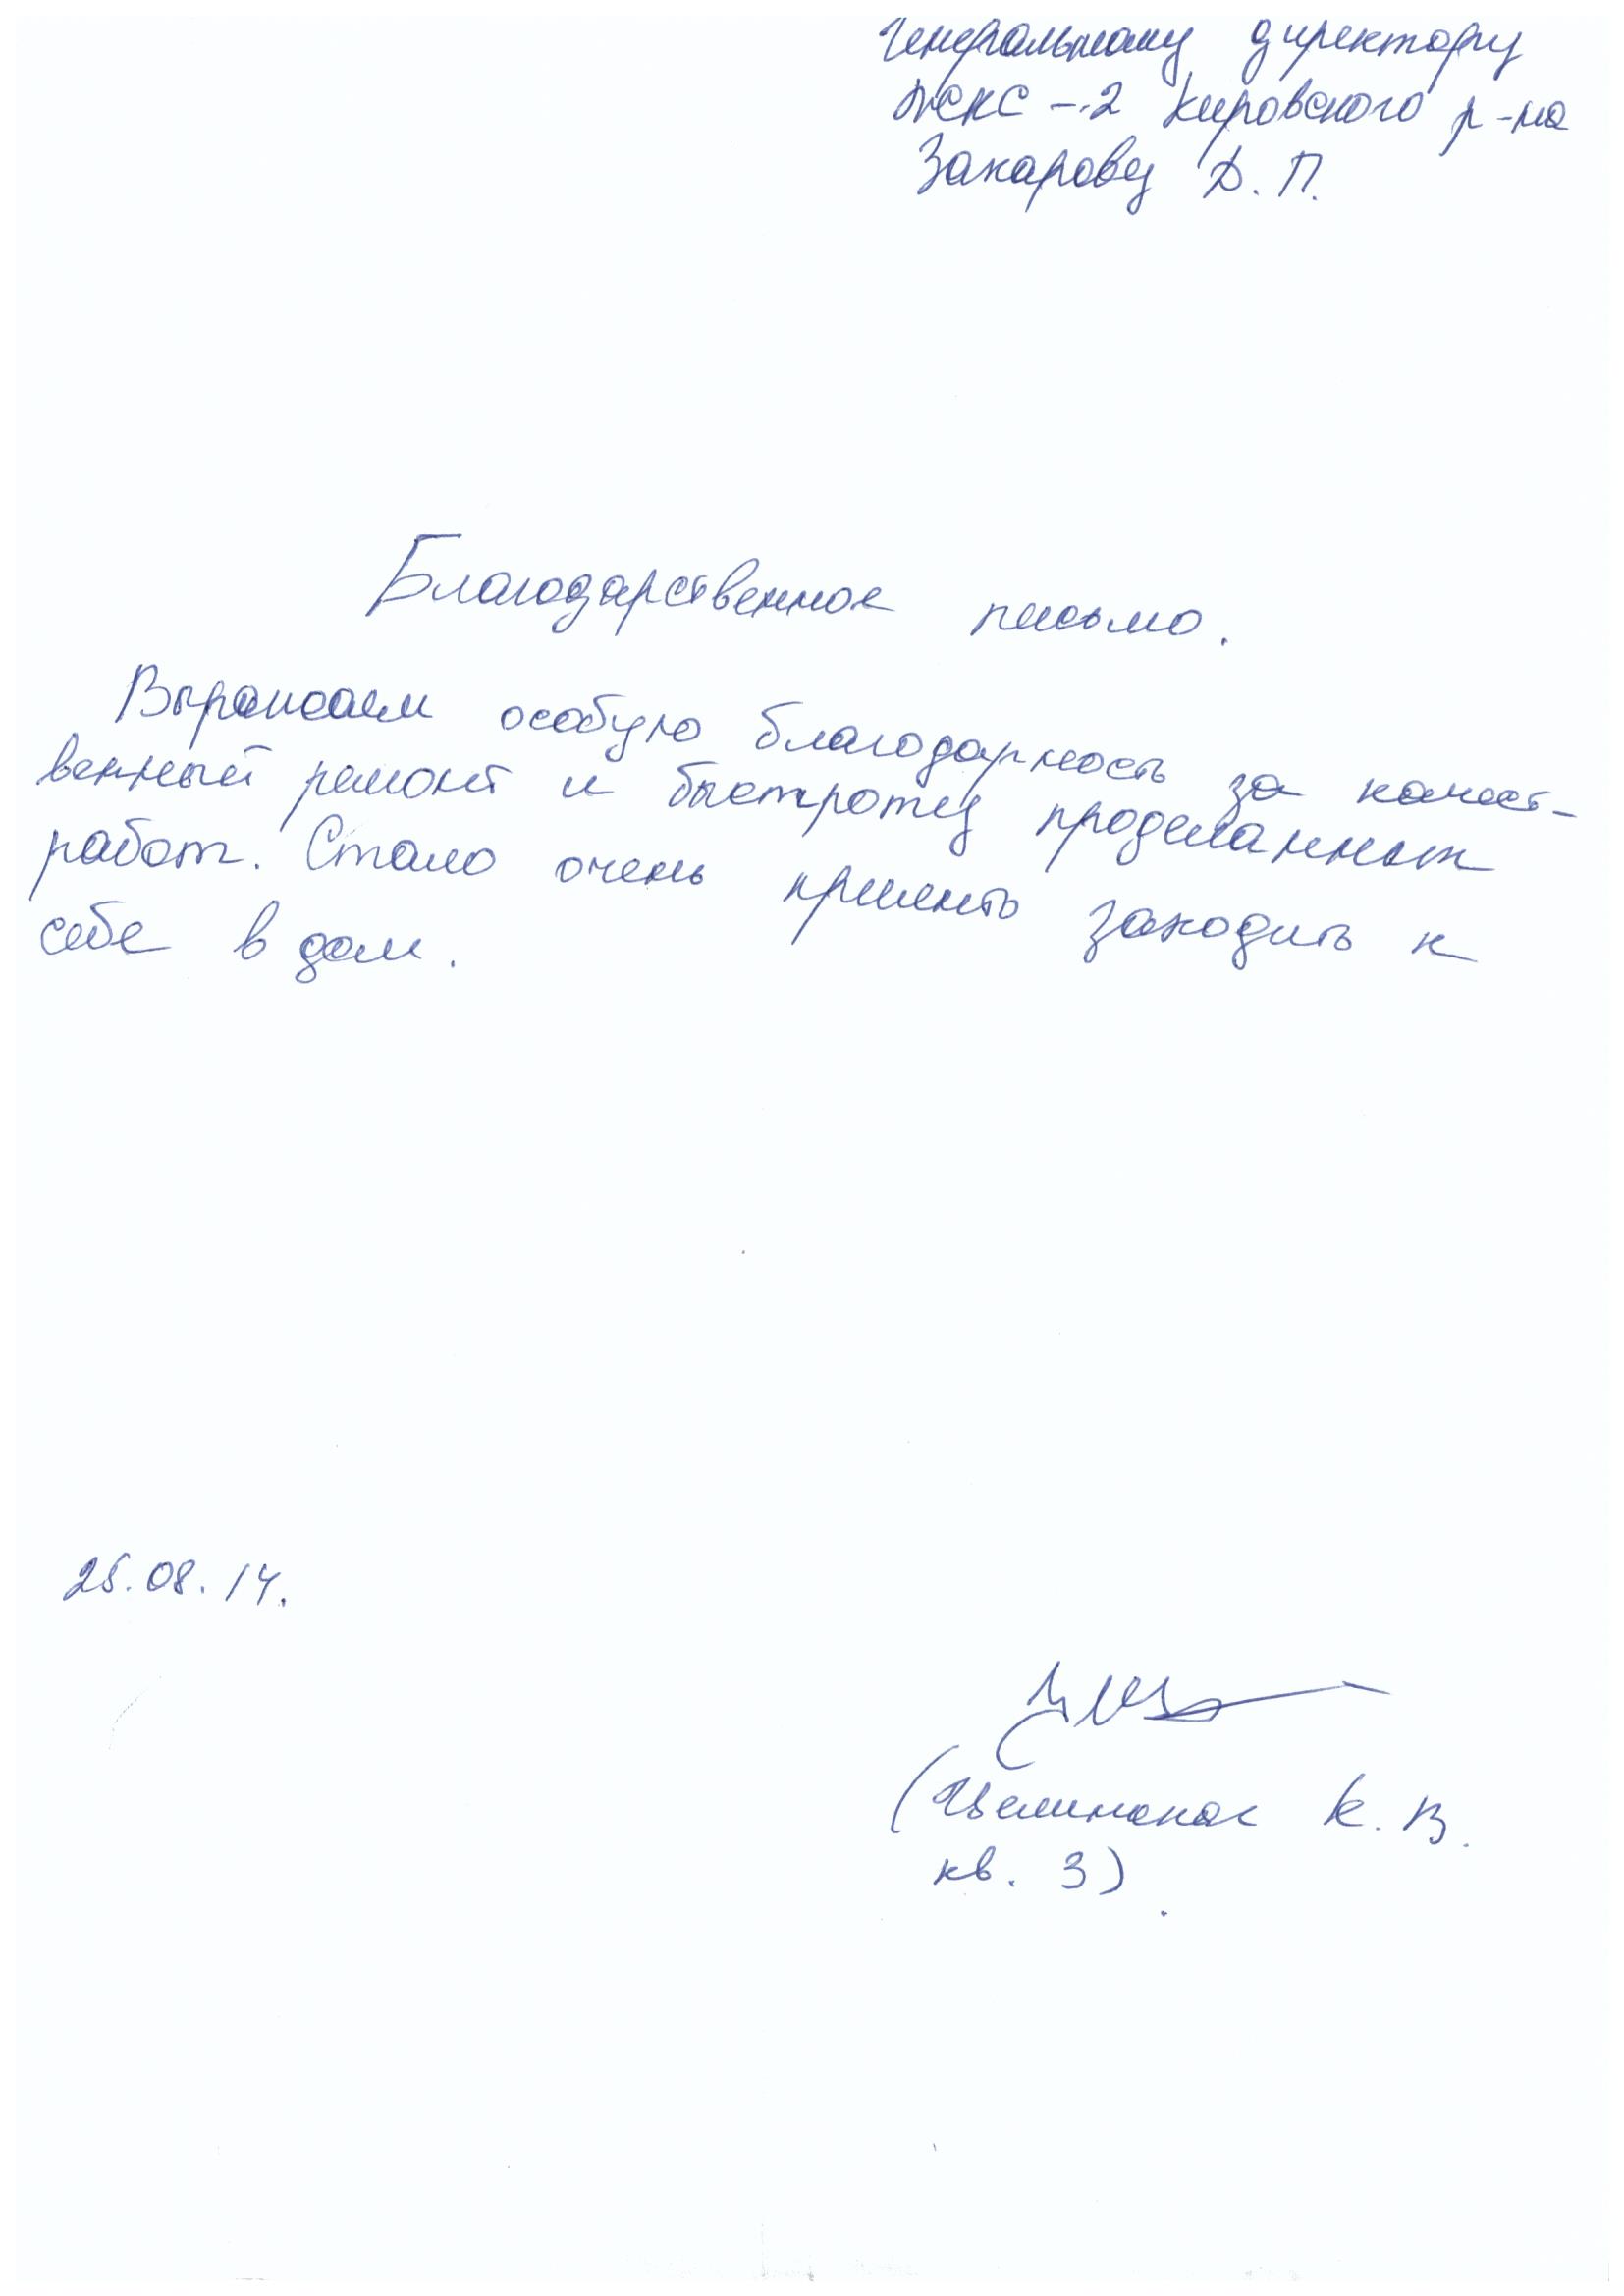 Генеральному директору
ЖКС-2 Кировского р-на
Захарову Д. П.
Благодарственное письмо.
Выражаем особую благодарность за качест-
венный ремонт и быстроту проделанных
работ. Стало очень приятно заходить к
себе в дом.
25.08.14.
К. В.
кв. 3).